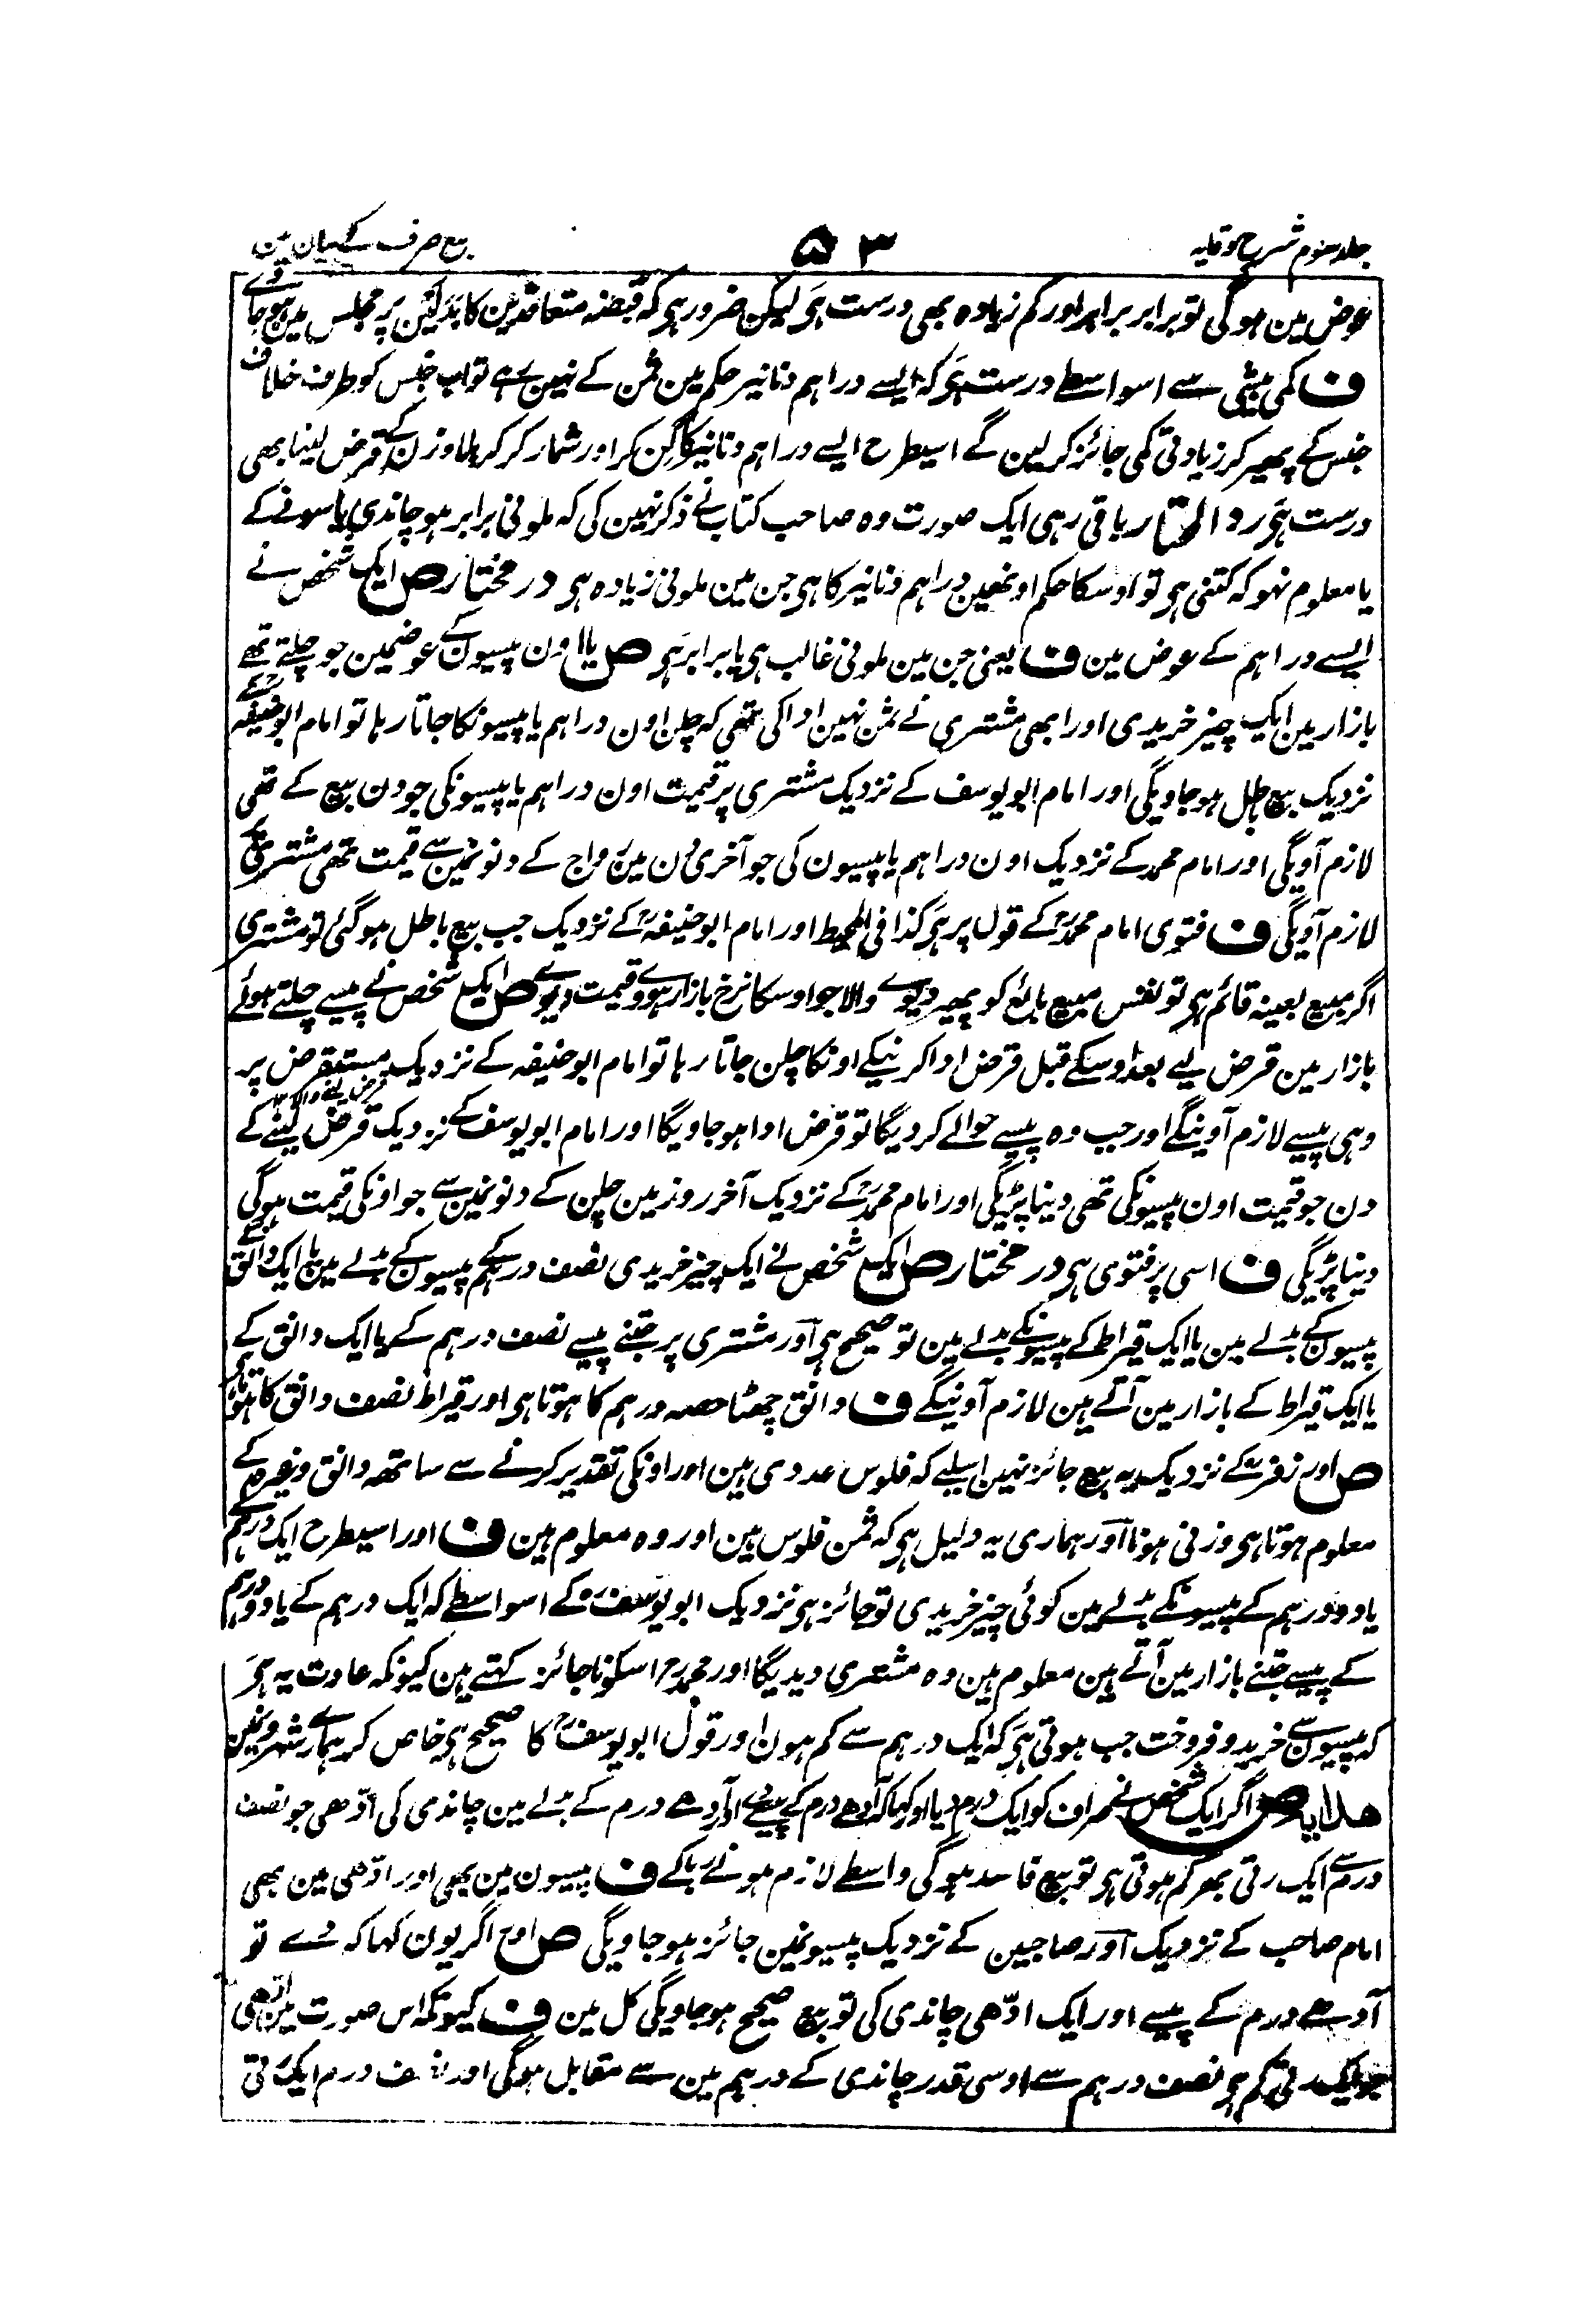 جلد سوم شرح وقایہ
۵۳
بیع صرف کے بیان مین
عوض مین ہوگی تو برابر برابر اور کم زیادہ بھی درست ہی لیکن ضرور ہی کہ قبضہ متعاقدین کا بدلین پر مجلس مین ہو جاوے
ف کمی بیشی سے اسواسطے درست ہی کہ ایسے دراہم دنانیر حکم مین ثمن کے نہین رہے تو اب جنس کو طرف خلاف
جنس کے پھیر کر زیادتی کمی جائز کرلین گے اسیطرح ایسے دراہم دنانیر کا گن کر اور شمار کر کر بلا وزن کے قرض لینا بھی
درست ہی رد المحتار باقی رہی ایک صورت وہ صاحب کتاب نے ذکر نہین کی کہ ملونی برابر ہو چاندی یا سونے کے
یا معلوم نہو کہ کتنی ہی تو اوسکا حکم اونھین دراہم دنانیر کا ہی جن مین ملونی زیادہ ہی در مختار ص ایک شخص نے
ایسے دراہم کے عوض مین ف یعنی جن مین ملونی غالب ہی یا برابر ہی ص یا اون پیسون کے عوضمین جو چلتے تھے
بازار مین ایک چیز خریدی اور ابھی مشتری نے ثمن نہین ادا کی تھی کہ چلن اون دراہم یا پیسونکا جاتا رہا تو امام ابو حنیفہ کے
نزدیک بیع باطل ہو جاویگی اور امام ابو یوسف کے نزدیک مشتری پر قیمت اون دراہم یا پیسونکی جو دن بیع کے تھی
لازم آویگی اور امام محمد کے نزدیک اون دراہم یا پیسون کی جو آخری دن مین رواج کے دنونمین سے قیمت تھی مشتری پر
لازم آویگی ف فتوی امام محمدؒ کے قول پر ہی کذا فی المحیط اور امام ابو حنیفہؒ کے نزدیک جب بیع باطل ہو گئی تو مشتری
اگر مبیع بعینہ قائم ہی تو نفس مبیع بائع کو پھیر دیوے والا جو اوسکا نرخ بازار ہووے قیمت دیوے ص ایک شخص نے پیسے چلتے ہوئے
بازار مین قرض لیے بعد اوسکے قبل قرض ادا کرنیکے اونکا چلن جاتا رہا تو امام ابو حنیفہ کے نزدیک مستقرض پر
قرض لینے والا
وہی پیسے لازم آوینگے اور جب وہ پیسے حوالے کر دیگا تو قرض ادا ہو جاویگا اور امام ابو یوسف کے نزدیک قرض لینے کے
دن جو قیمت اون پیسونکی تھی دینا پڑیگی اور امام محمدؒ کے نزدیک آخر روز مین چلن کے دنونمین سے جو اونکی قیمت ہوگی
دینا پڑیگی ف اسی پر فتوی ہی در مختار ص ایک شخص نے ایک چیز خریدی نصف درہم کے پیسون کے بدلے مین یا ایک دانق کے
پیسون کے بدلے مین یا ایک قیراط کے پیسونکے بدلے مین تو صحیح ہی اور مشتری پر جتنے پیسے نصف درہم کے یا ایک دانق کے
یا ایک قیراط کے بازار مین آتے ہین لازم آوینگے ف دانق چھٹا حصہ درہم کا ہوتا ہی اور قیراط نصف دانق کا ہوتا ہی
ص اور زفرؒ کے نزدیک یہ بیع جائز نہین اسلیے کہ فلوس عددی ہین اور اونکی تقدیر کرنے سے ساتھ دانق وغیرہ کے
معلوم ہوتا ہی وزنی ہونا اور ہماری یہ دلیل ہی کہ ثمن فلوس ہین اور وہ معلوم ہین ف اور اسیطرح ایک درہم کے
یا دو درہم کے پیسونکے بدلے مین کوئی چیز خریدی تو جائز ہی نزدیک ابو یوسفؒ کے اسواسطے کہ ایک درہم کے یا دو درہم
کے پیسے جتنے بازار مین آتے ہین معلوم ہین وہ مشتری دیدیگا اور محمدؒ اسکو ناجائز کہتے ہین کیونکہ عادت یہ ہی
کہ پیسون سے خرید و فروخت جب ہوتی ہی کہ ایک درہم سے کم ہون اور قول ابو یوسفؒ کا صحیح ہی خاص کر ہمارے شہرونمین
ھدایا ص اگر ایک شخص نے صراف کو ایک درم دیا اور کہا کہ آدھے درم کے پیسے دے اور آدھے درم کے بدلے مین چاندی کی ادّھی جو نصف
درم سے ایک رتی بھر کم ہوتی ہی تو بیع فاسد ہوگی واسطے لازم ہونے ربا کے ف پیسون مین بھی اور ادّھی مین بھی
امام صاحب کے نزدیک اور صاحبین کے نزدیک پیسونمین جائز ہو جاویگی ص اور اگر یون کہا کہ دے تو
آدھے درم کے پیسے اور ایک ادّھی چاندی کی تو بیع صحیح ہو جاویگی کل مین ف کیونکہ اس صورت مین ادّھی
جو ایک رتی کم ہی نصف درہم سے اوسی قدر چاندی کے درہم مین سے مقابل ہوگی اور نصف درم ایک رتی